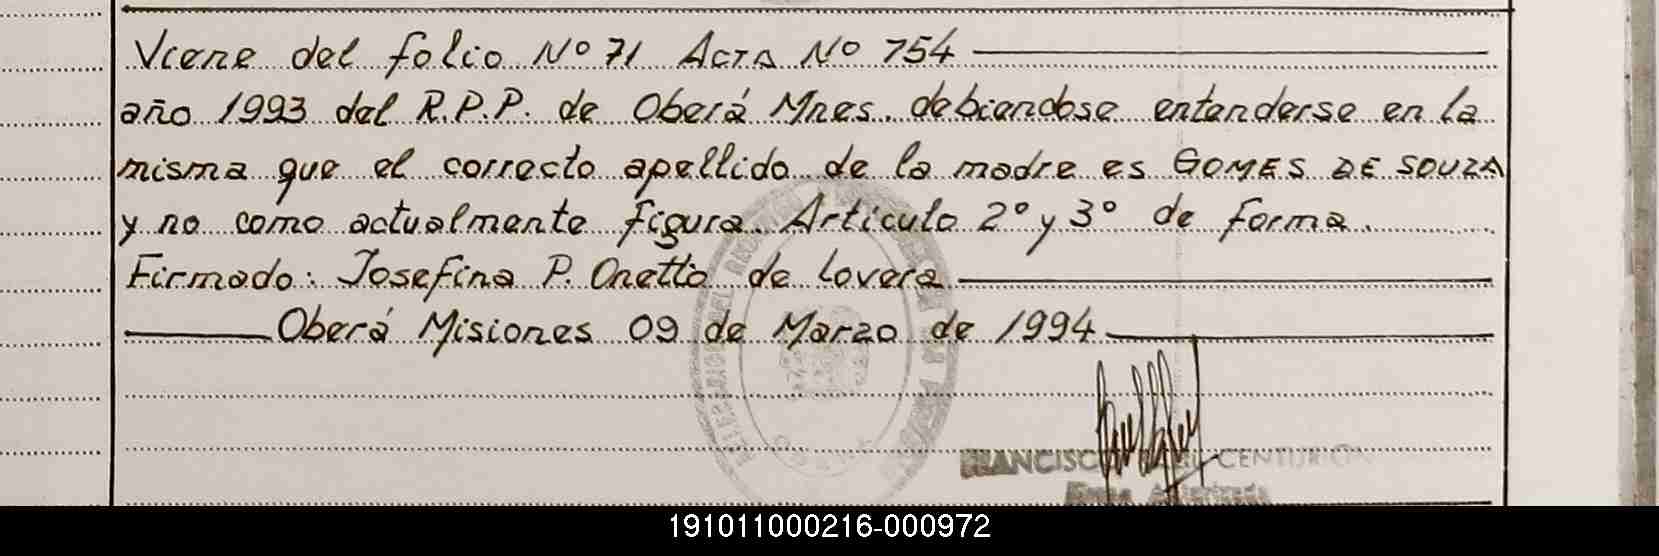 Viene del folio Nº 71 Acta Nº 754
año 1993 del R.P.P. de Oberá Mnes. debiendose entenderse en la
misma que el correcto apellido de la madre es GOMES DE SOUZA
y no como actualmente figura. Articulo 2º y 3º de forma.
Firmado: Josefina P. Onetto de Lovera
Oberá Misiones 09 de Marzo de 1994
FRANCISCO CENTURION
191011000216-000972